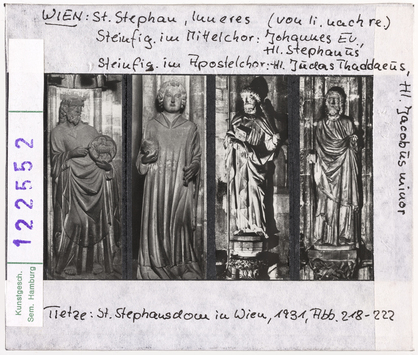 WIEN: St. Stephan, Inneres (von li. nach re.)
Steinfig. im Mittelchor: Johannes Ev,
Hl. Stephanus,
Steinfig. im Apostelchor:-Hl. Judas Thaddaeus,
-Hl. Jacobus minor
122552
Kunstgesch.
Sem. Hamburg
Tietze: St. Stephansdom in Wien, 1931, Abb. 218-222